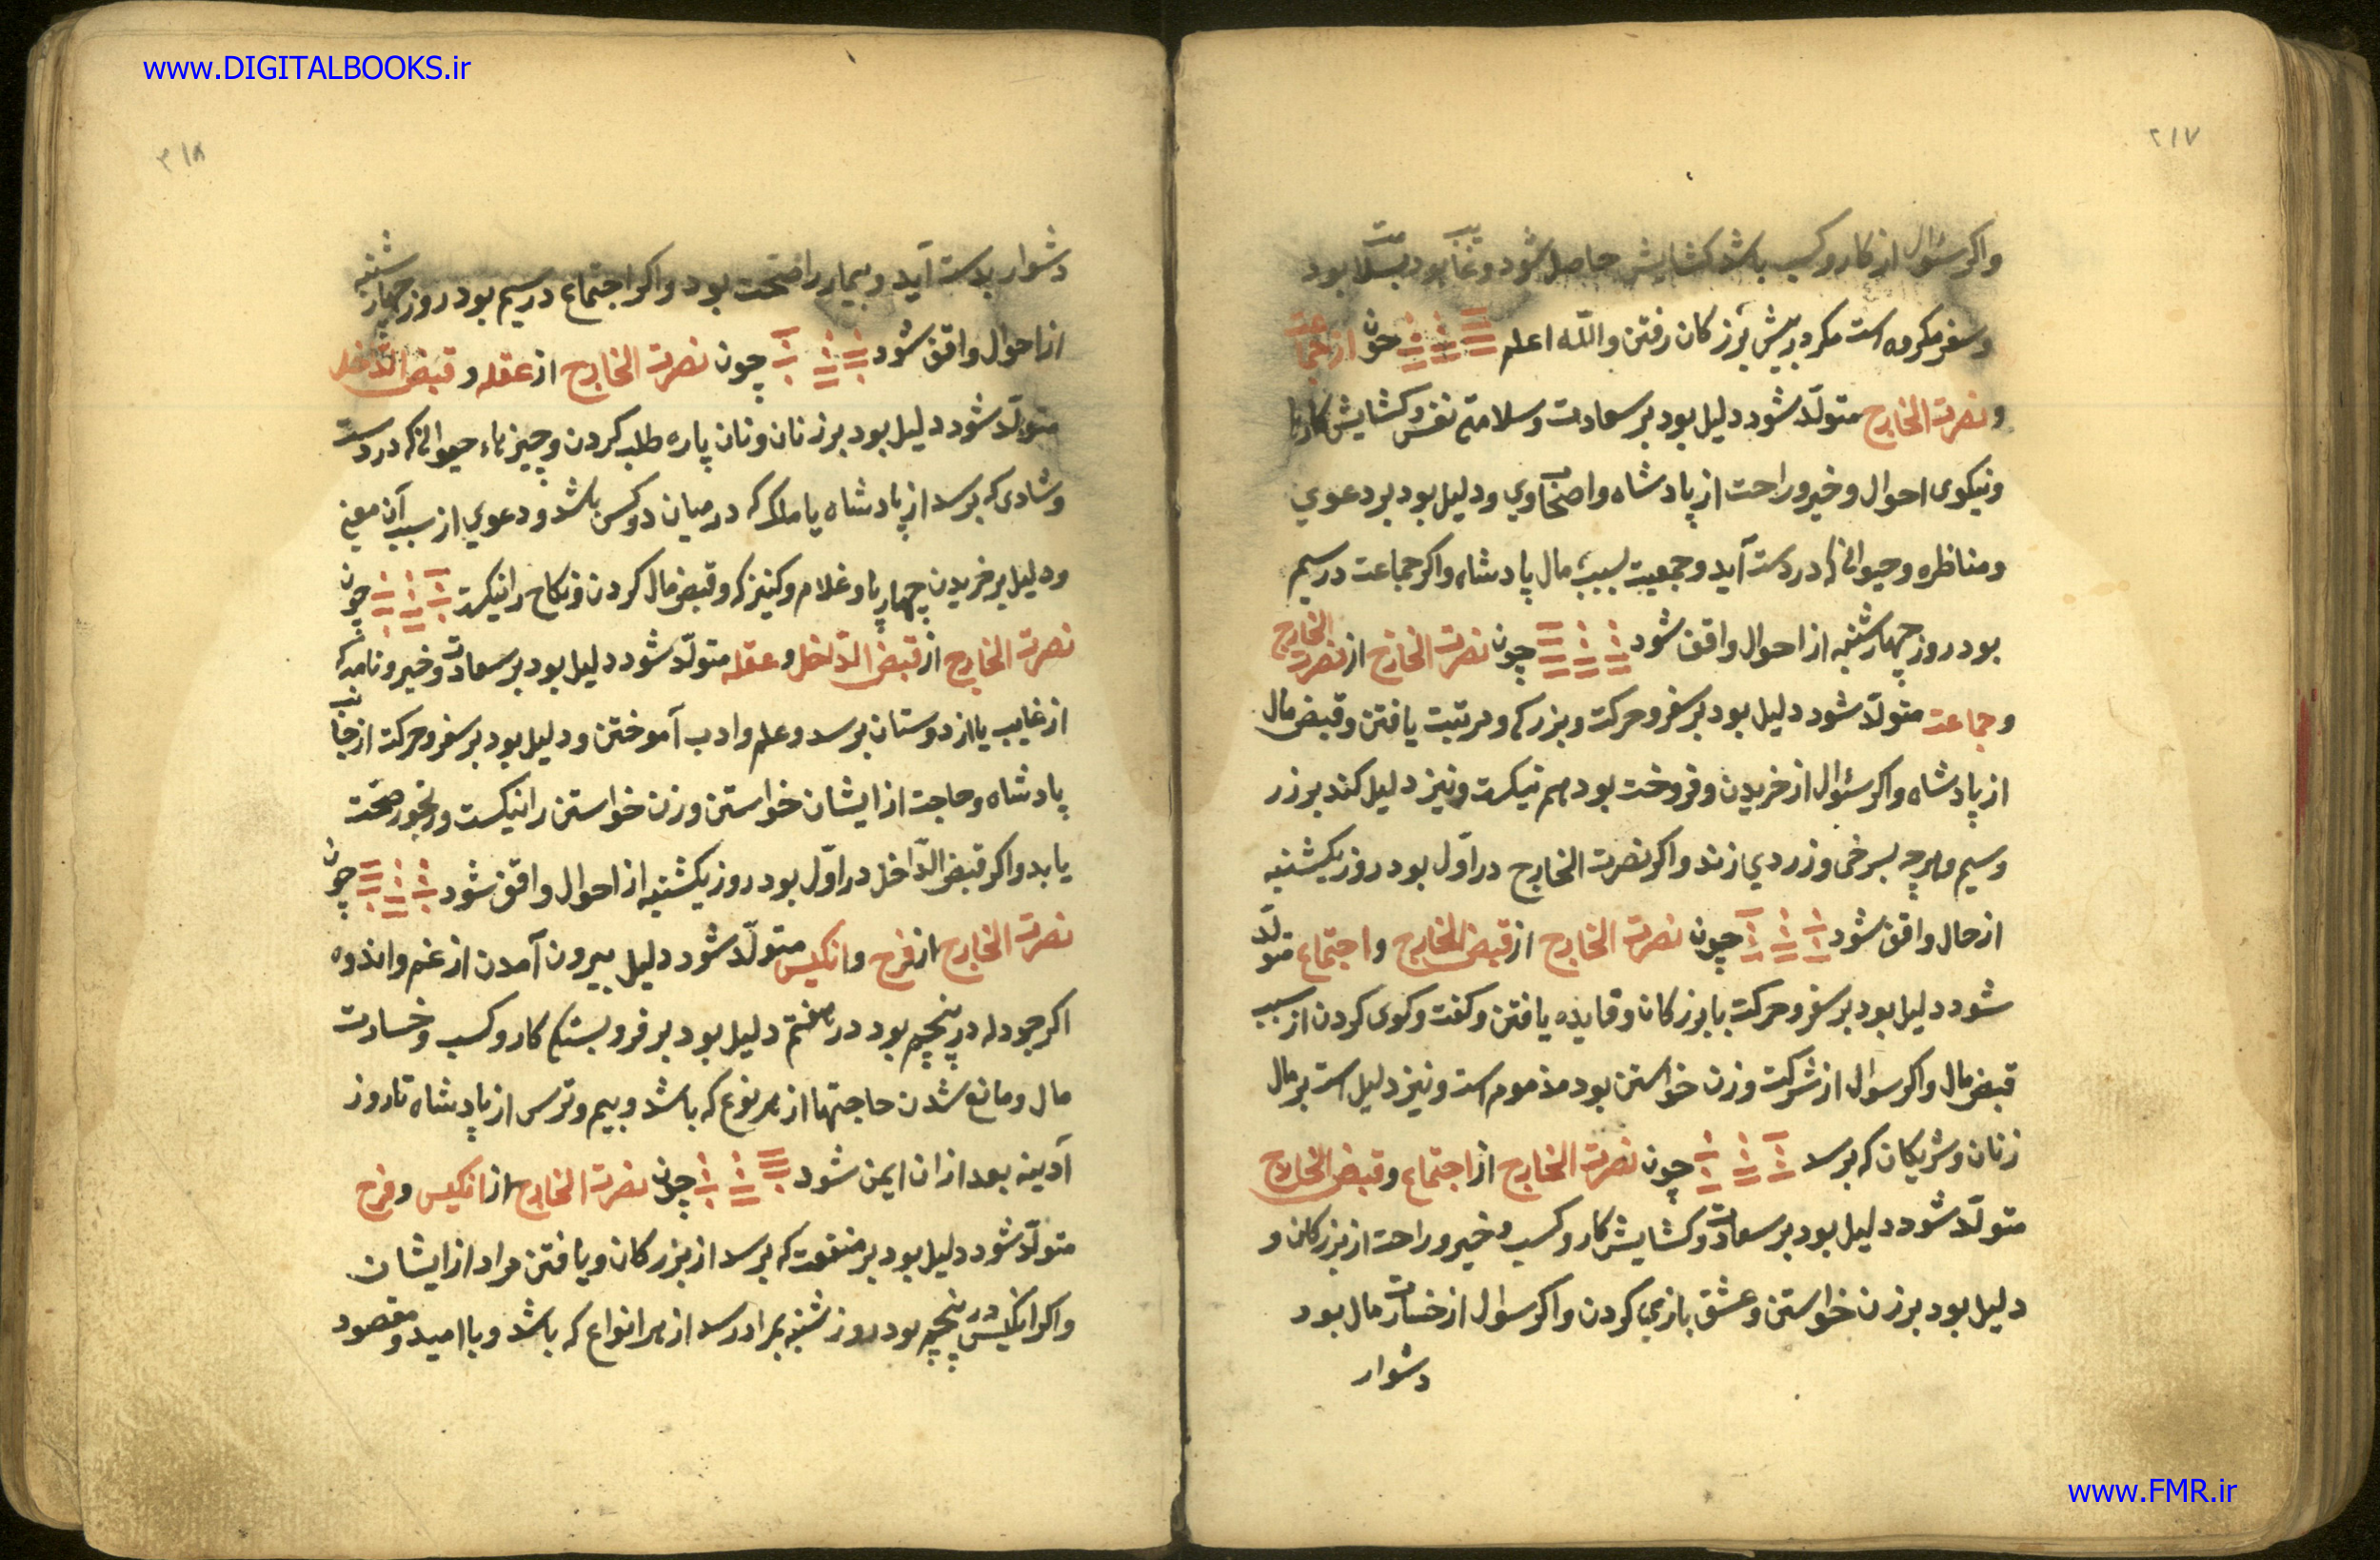 www.DIGITALBOOKS.ir
٢١٧
واکر سئوال از کار و کسب باشد کشایش حاصل شود و غایب بود بسلامت بود
و سفر مکروه است مکر در پیش بزرکان رفتن والله اعلم چون از جماعت
و نصرت الخارج متولّد شود دلیل بود بر سعادت و سلامتی نفس و کشایش کارها
و نیکوی احوال و خیر و راحت از پادشاه و اصحاب وی و دلیل بود بر دعوی
و مناظره و حیوانی که در دست آید و جمعیت بسبب مال پادشاه واکر جماعت در سیم
بود روز چهارشنبه از احوال واقف شود چون نصرت الخارج از نصرت الخارج
و جماعت متولّد شود دلیل بود بر سفر و حرکت و بزرکی و مرتبت یافتن و قبض مال
از پادشاه واکر سئوال از خریدن و فروخت بود هم نیکست و نیز دلیل کند بر زر
و سیم و هرچه بسرخی و زردی زند واکر نصرت الخارج در اوّل بود روز یکشنبه
از حال واقف شود چون نصرت الخارج از قبض الخارج و اجتماع متولّد
شود دلیل بود بر سفر و حرکت با بزرکان و فایده یافتن و کفت و کوی کردن از سبب
قبض مال واکر سوال از شرکت و زن خواستن بود مذموم است و نیز دلیل است بر مال
زنان و شریکان که برسد چون نصرت الخارج از اجتماع و قبض الخارج
متولّد شود دلیل بود بر سعادت و کشایش کار و کسب و خیر و راحت از بزرکان و
دلیل بود بر زن خواستن و عشق بازی کردن واکر سوال از خسارت مال بود
دشوار
٢١٨
دشوار بدست آید و بیمار را صحّت بود واکر اجتماع در سیم بود روز چهارشنبه
از احوال واقف شود چون نصرت الخارج از عقله و قبض الدّاخل
متولّد شود دلیل بود بر زنان و نان پاره طلب کردن و چیزهاء حیوانی که در دست
و شادی که برسد از پادشاه یا ملک که در میان دو کس باشد و دعوی از سبب آن معنی
و دلیل بر خریدن چهارپا و غلام و کنیزک و قبض مال کردن و نکاح را نیکست چون
نصرت الخارج از قبض الدّاخل و عقله متولّد شود دلیل بود بر سعادت و خیر و نامه که
از غایب یا از دوستان برسد و علم و ادب آموختن و دلیل بود بر سفر و حرکت از جانب
پادشاه و حاجت از ایشان خواستن و زن خواستن را نیکست و رنجور صحّت
یابد واکر قبض الدّاخل در اوّل بود روز یکشنبه از احوال واقف شود چون
نصرت الخارج از فرح و انکیس متولّد شود دلیل بیرون آمدن از غم و اندوه
اکر جودله در پنجم بود در هفتم دلیل بود بر فرو بستکی کار و کسب و خسارت
مال و مانع شدن حاجتها از هر نوع که باشد و بیم و ترس از پادشاه تا روز
آدینه بعد ازان ایمن شود چون نصرت الخارج از انکیس و فرح
متولّد شود دلیل بود بر منفعت که برسد از بزرکان و یافتن مراد از ایشان
واکر انکیس در پنجم بود روز شنبه بمراد رسد از هر انواع که باشد و با امید و مقصود
www.FMR.ir